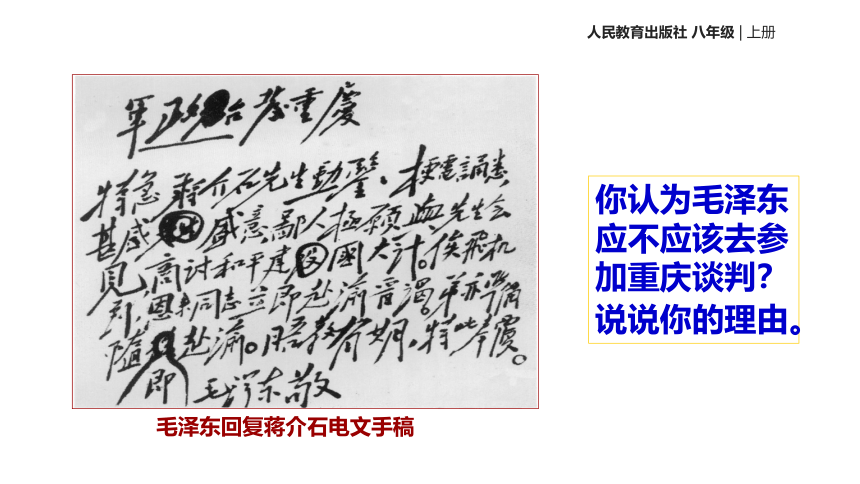 人民教育出版社 八年级 | 上册
特急 蒋介石先生勋鉴、梗電誦悉
甚感盛意鄙人極願與先生会
見，商討和平建國大計。俟飛机
到，恩来同志立即赴渝晋謁，弟亦準備
隨即赴渝。晤教有期，特此奉覆。
毛泽东敬
毛泽东回复蒋介石电文手稿
你认为毛泽东
应不应该去参
加重庆谈判？
说说你的理由。